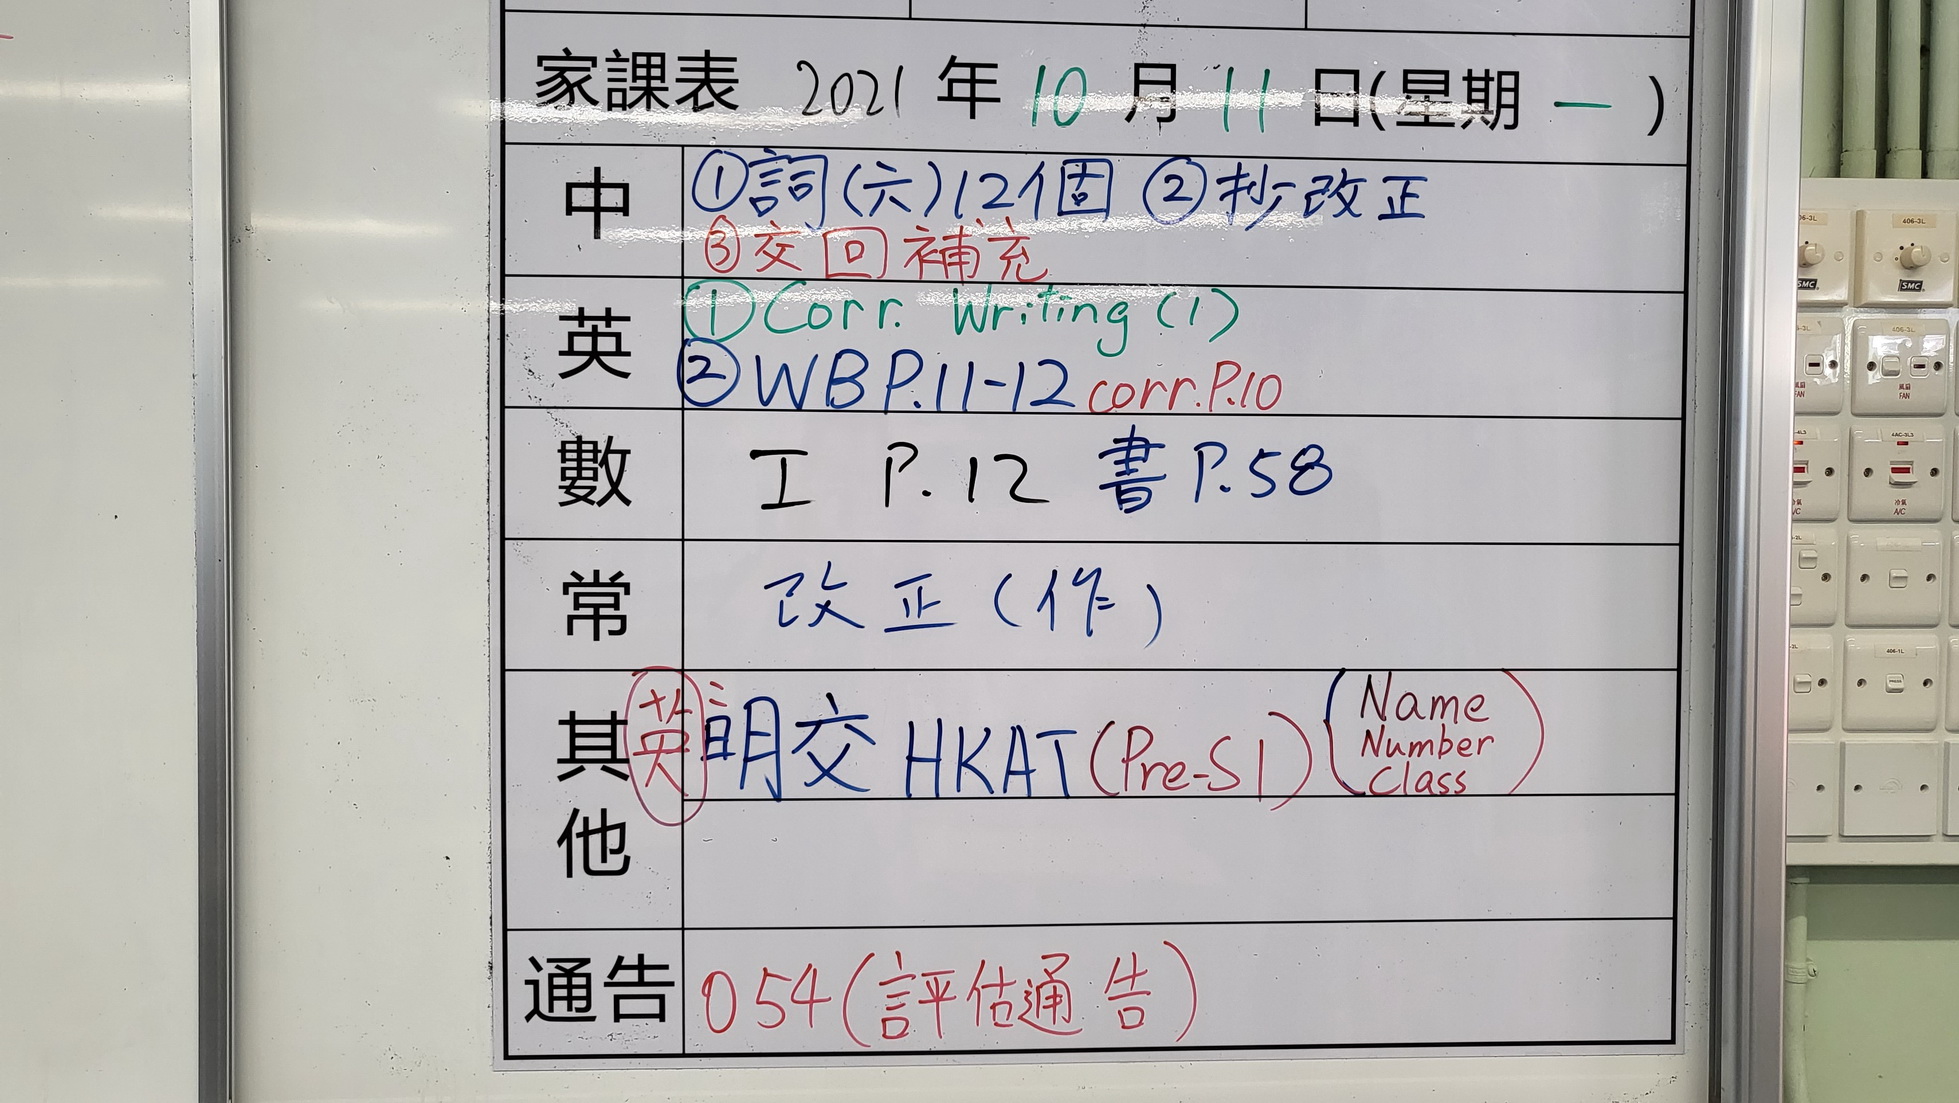 家課表 2021 年 10 月 11 日(星期 一 )
中 ①詞(六)12個 ②抄改正
③交回補充
英 ①Corr. Writing (1)
②WB P.11-12 corr.P.10
數 工 P.12 書P.58
常 改正(作)
其他 英 明交 HKAT (Pre-S1) (Name
Number
Class)
通告 054(評估通告)
406-3L
SMC
406-3L
風扇
FAN
冷氣
A/C
406-1L